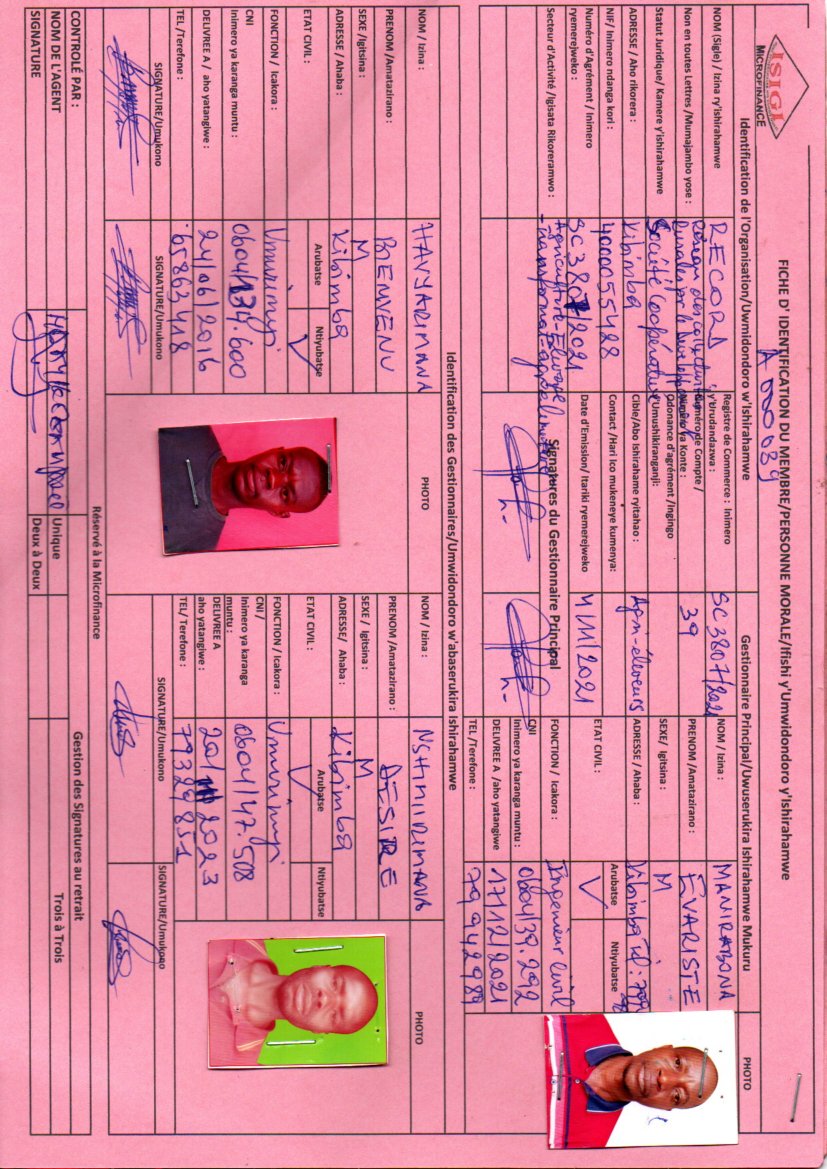 ISIGI
MICROFINANCE
FICHE D' IDENTIFICATION DU MEMBRE/PERSONNE MORALE/Ifishi y'Umwidondoro y'Ishirahamwe
A 000089
Identification de l'Organisation/Uwmidondoro w'Ishirahamwe
Gestionnaire Principal/Uwuserukira Ishirahamwe Mukuru
NOM (Sigle) / Izina ry'ishirahamwe
RECORD
Non en toutes Lettres /Mumajambo yose :
Statut Juridique/ Kamere y'ishirahamwe
Société Coopérative
ADRESSE / Aho rikorera :
Kibimba
NIF/ Inimero ndanga kori :
4000055488
Numéro d'Agrément / Inimero
ryemerejweko :
SC 3807/2021
Secteur d'Activité /Igisata Rikoreramwo :
Agriculture-Elevage
Registre de Commerce : Inimero
y'brudandazwa :
SC 3807/2021
Numéro de Compte /
Nimero ya Konte :
39
Odonance d'agrément /Ingingo
Umushikiranganji:
Cible/Abo Ishirahame ryitahao :
Agri-éleveurs
Contact /Hari ico mukeneye kumenya:
Date d'Emission/ Itariki ryemerejweko
4/11/2021
Signatures du Gestionnaire Principal
NOM / Izina :
MANIRABONA
PRENOM /Amatazirano :
EVARISTE
SEXE/ Igitsina :
M
ADRESSE / Ahaba :
Kibimba
ETAT CIVIL :
Arubatse
Ntiyubatse
FONCTION / Icakora :
Ingenieur civil
CNI
Inimero ya karanga muntu :
0604/39.292
DELIVREE A /aho yatangiwe
17/12/2021
TEL /Terefone :
79 942 989
PHOTO
Identification des Gestionnaires/Umwidondoro w'abaserukira Ishirahamwe
NOM / Izina :
HAVYARIMANA
PRENOM /Amatazirano :
BIENVENU
SEXE /Igitsina :
M
ADRESSE / Ahaba :
Kibimba
ETAT CIVIL :
Arubatse
Ntiyubatse
FONCTION / Icakora :
Umurimyi
CNI
Inimero ya karanga muntu :
0604/134.600
DELIVREE A / aho yatangiwe :
24/06/2016
TEL /Terefone :
65863418
SIGNATURE/Umukono
SIGNATURE/Umukono
PHOTO
NOM / Izina :
NSHIMIRIMANA
PRENOM /Amatazirano :
DESIRE
SEXE / Igitsina :
M
ADRESSE/ Ahaba :
Kibimba
ETAT CIVIL :
Arubatse
Ntiyubatse
FONCTION / Icakora :
Umurimyi
CNI /
Inimero ya karanga
muntu :
0604/147.508
DELIVREE A
aho yatangiwe :
TEL/ Terefone :
79329851
SIGNATURE/Umukono
SIGNATURE/Umukono
PHOTO
Réservé à la Microfinance
CONTROLÉ PAR :
NOM DE L'AGENT
SIGNATURE
Gestion des Signatures au retrait
Unique
Deux à Deux
Trois à Trois